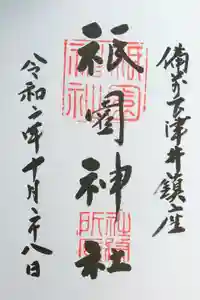 備前下津井鎮座
祇園神社
令和二年十月二十八日
祇園神社
社務所